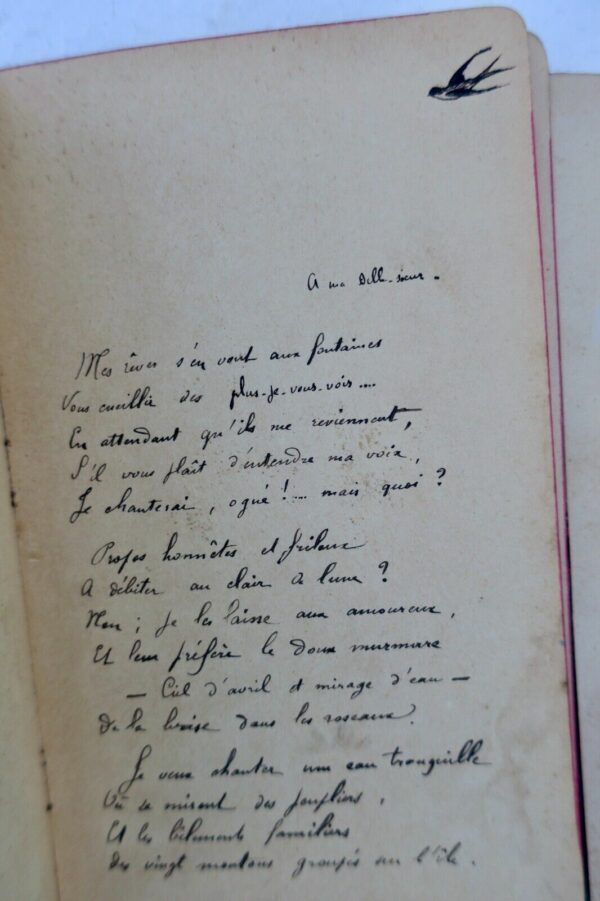 A ma Belle-sœur.
Mes rêves s'en vont aux fontaines
Vous cueillir des plus-je-vous-vois....
En attendant qu'ils me reviennent,
S'il vous plaît d'entendre ma voix,
Je chanterai, o gué !... mais quoi ?
Propos honnêtes et frileux
A débiter au clair de lune ?
Non ; je les laisse aux amoureux,
Et leur préfère le doux murmure
— Ciel d'avril et mirage d'eau —
De la brise dans les roseaux.
Je veux chanter une eau tranquille
Où se mirent des peupliers,
Et les bêlements familiers
Des vingt moutons groupés sur l'île.